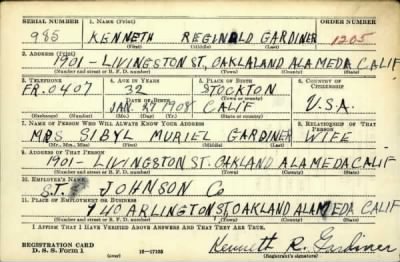 SERIAL NUMBER 1. NAME (Print) ORDER NUMBER
985 KENNETH REGINALD GARDINER 1205
(First) (Middle) (Last)
2. ADDRESS (Print)
1901 - LIVINGSTON ST, OAKLALAND ALAMEDA CALIF
(Number and street or R. F. D. number) (Town) (County) (State)
3. TELEPHONE 4. AGE IN YEARS 5. PLACE OF BIRTH 6. COUNTRY OF CITIZENSHIP
FR. 0407 32 STOCKTON
DATE OF BIRTH (Town or county)
JAN 27 1908 CALIF U.S.A.
(Exchange) (Number) (Mo.) (Day) (Yr.) (State or country)
7. NAME OF PERSON WHO WILL ALWAYS KNOW YOUR ADDRESS 8. RELATIONSHIP OF THAT PERSON
MRS SIBYL MURIEL GARDINER WIFE
(Mr., Mrs., Miss) (First) (Middle) (Last)
9. ADDRESS OF THAT PERSON
1901 - LIVINGSTON ST. OAKLAND ALAMEDA CALIF
(Number and street or R. F. D. number) (Town) (County) (State)
10. EMPLOYER'S NAME
S.T. JOHNSON Co
11. PLACE OF EMPLOYMENT OR BUSINESS
940 ARLINGTON ST. OAKLAND ALAMEDA CALIF
(Number and street or R. F. D. number) (Town) (County) (State)
I AFFIRM THAT I HAVE VERIFIED ABOVE ANSWERS AND THAT THEY ARE TRUE.
REGISTRATION CARD
D. S. S. Form 1 (over) 16-17105 Kenneth R. Gardiner
(Registrant's signature)